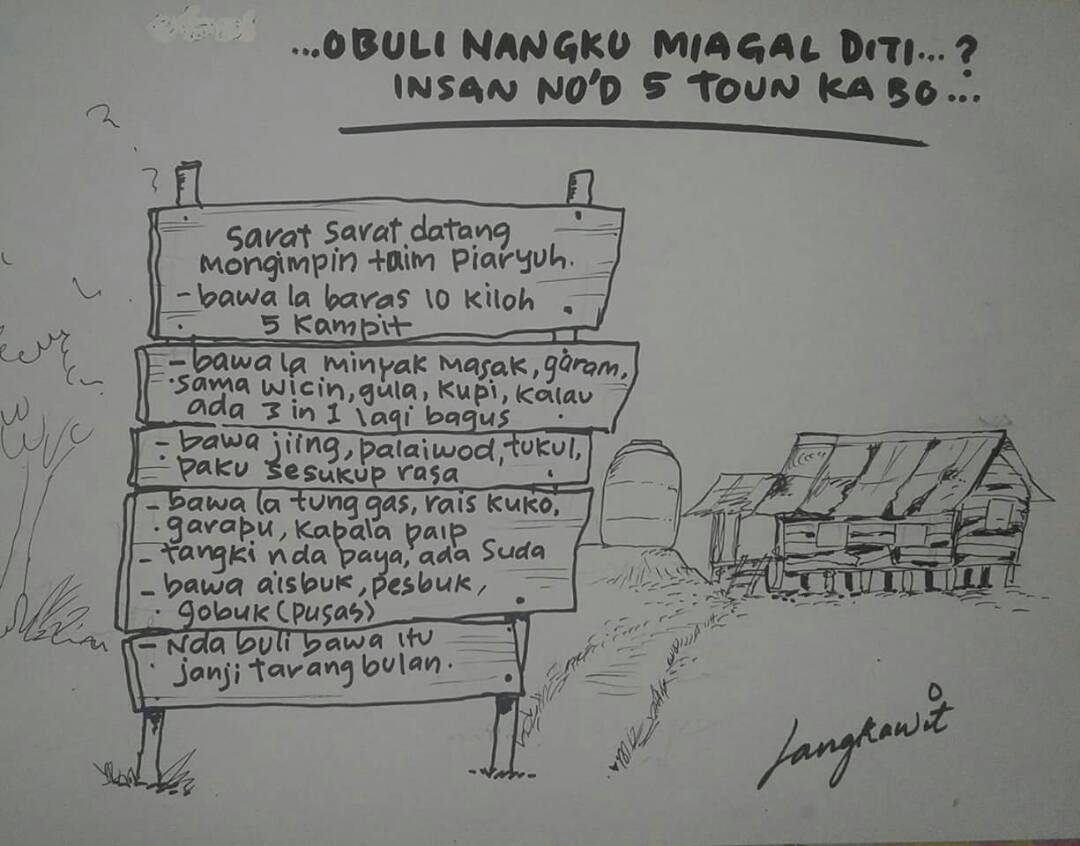 ...OBULI NANGKU MIAGAL DITI...?
INSAN NO'D 5 TOUN KA BO...
Sarat sarat datang
mongimpin taim piaryuh.
- bawa la baras 10 kiloh
5 kampit
- bawa la minyak masak, garam,
sama wicin, gula, kupi, kalau
ada 3 in 1 lagi bagus
- bawa jiing, palaiwod, tukul,
paku sesukup rasa
- bawa la tung gas, rais kuko,
garapu, kapala paip
- tangki nda paya, ada suda
- bawa aisbuk, pesbuk,
gobuk (pusas)
- Nda buli bawa itu
janji tarang bulan.
Langkawit